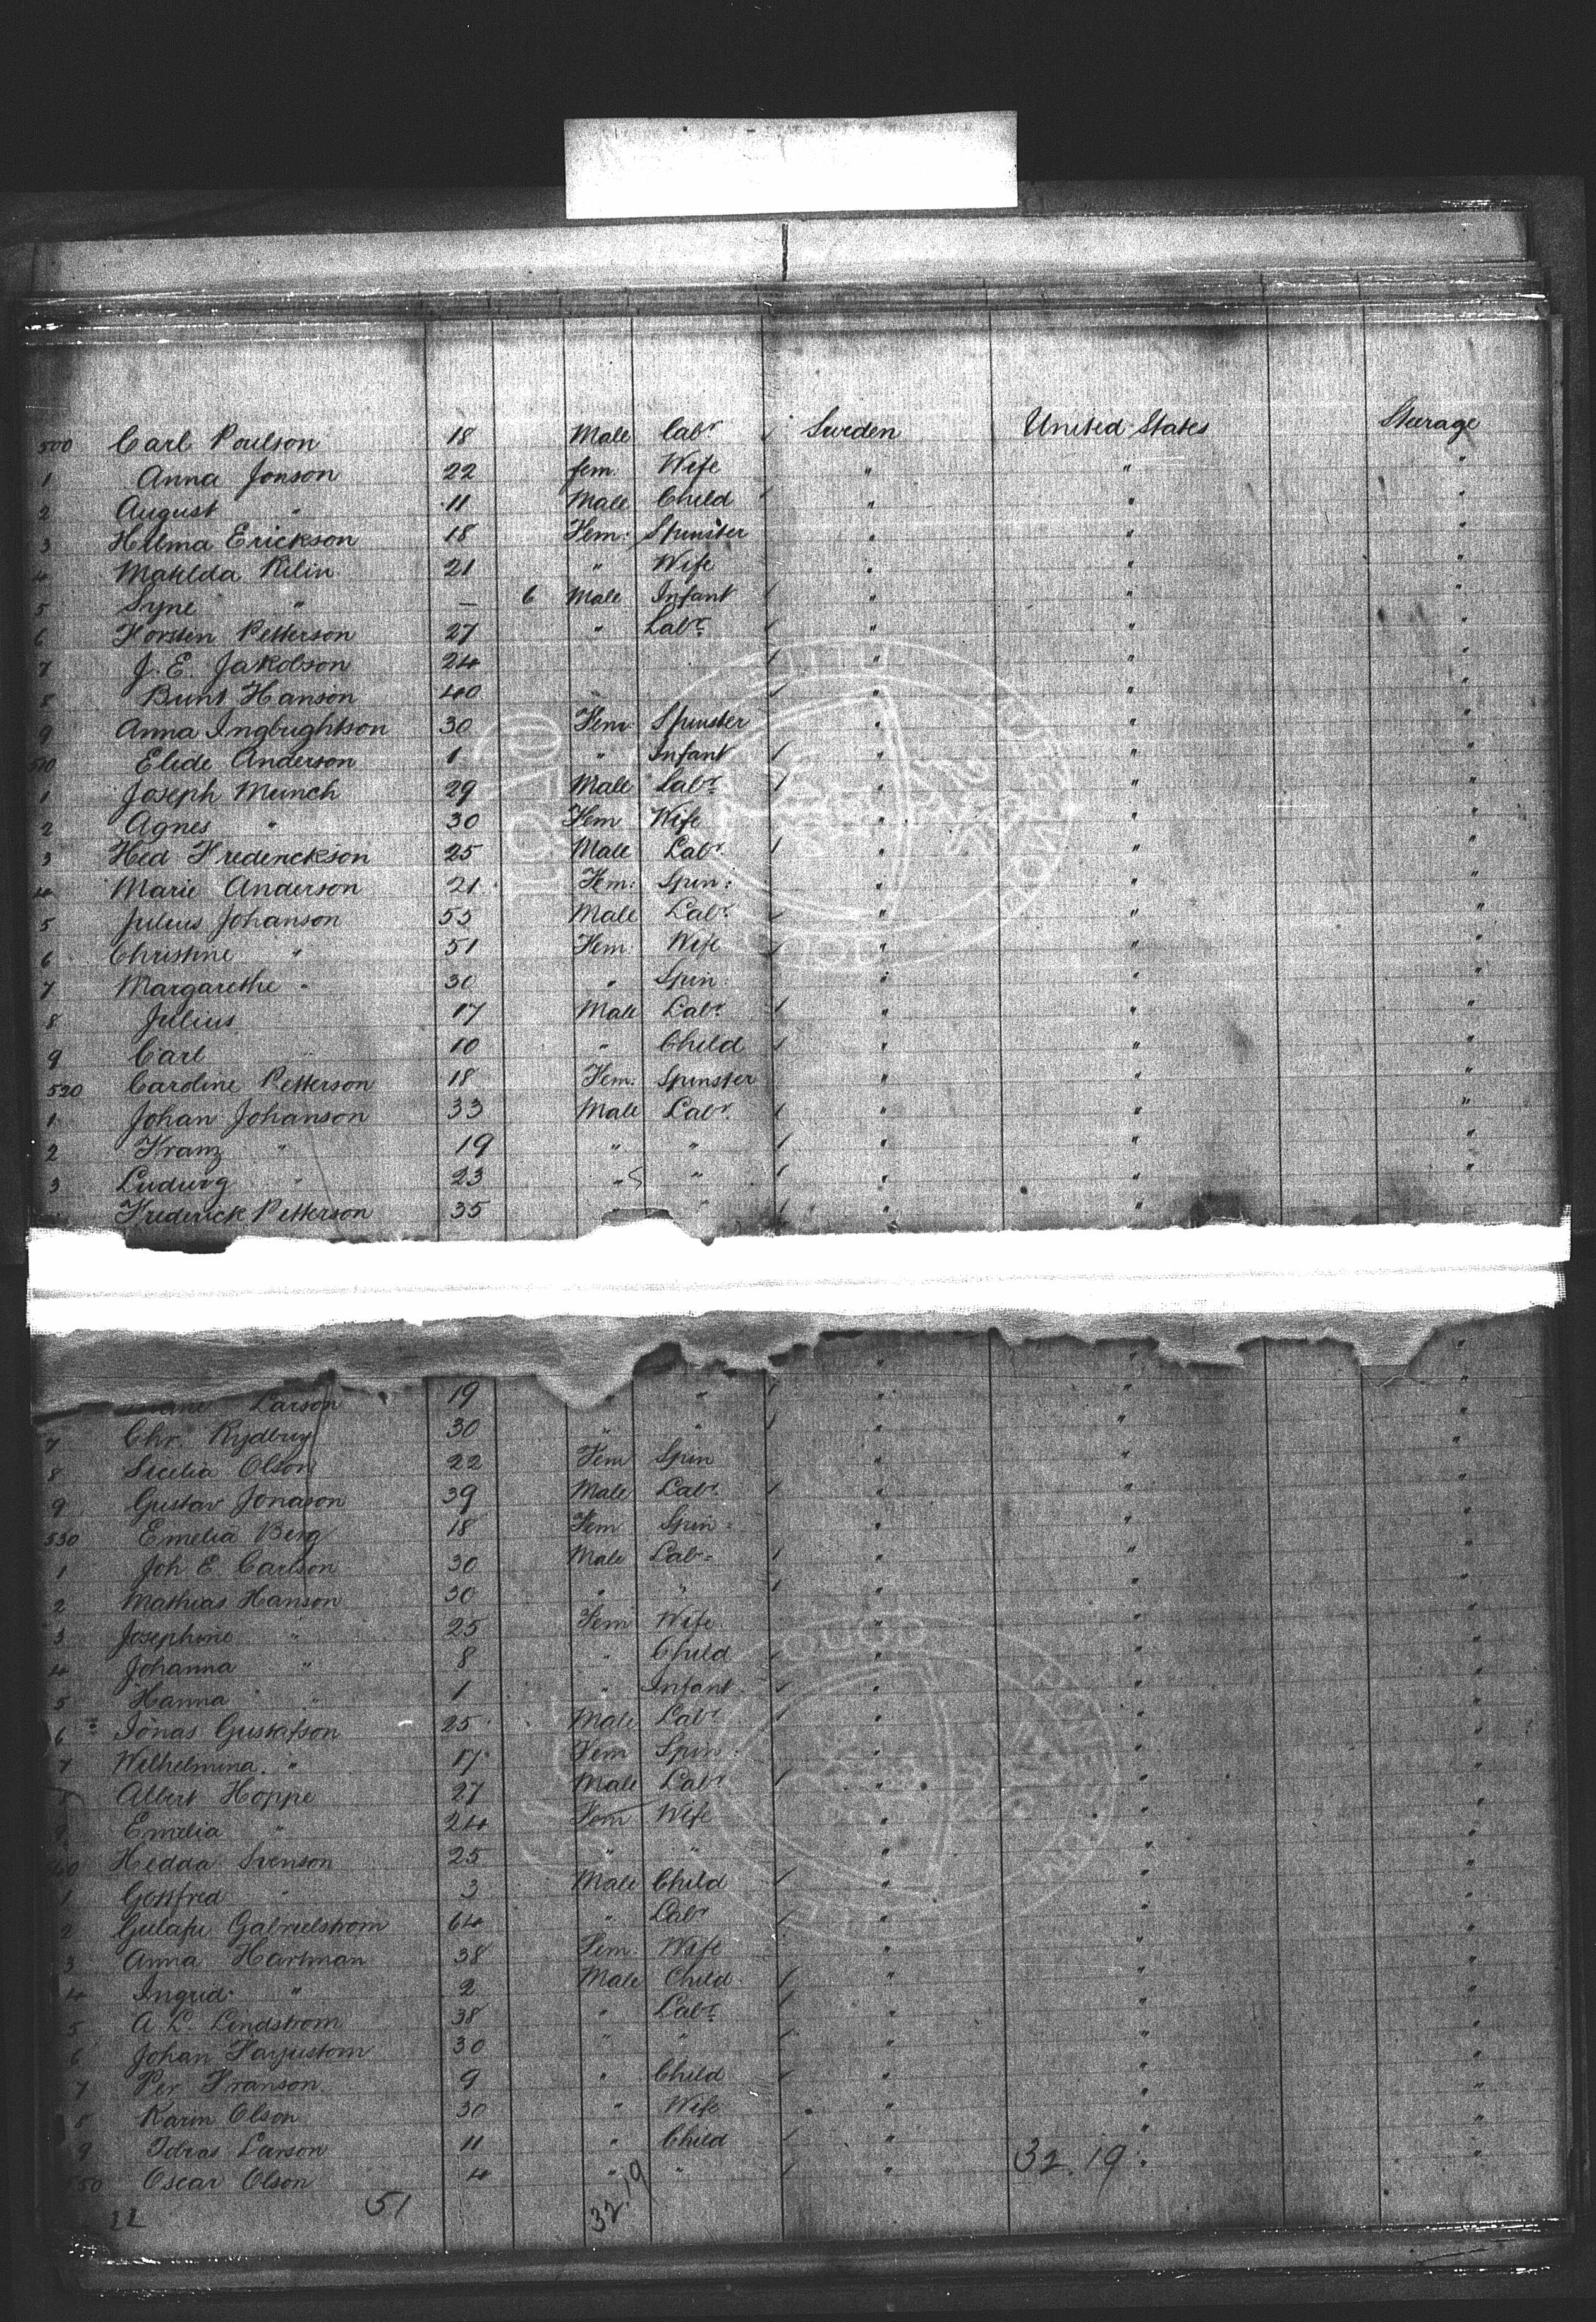 500 Carl Poulson 18 Male Labr Sweden United States Steerage
1 Anna Jonson 22 fem. Wife " " "
2 August " 11 Male Child " " "
3 Hilma Erickson 18 Fem: Spinster " " "
4 Matilda Kilin 21 " Wife " " "
5 Syne " — 6 Male Infant " " "
6 Torsten Petterson 27 " Labr " " "
7 J. E. Jakobson 24 " " "
8 Bunt Hanson 40 " " " "
9 Anna Ingbrightson 30 Fem: Spinster " " "
510 Elide Anderson 1 " Infant " " "
1 Joseph Munch 29 Male Labr " " "
2 Agnes " 30 Fem Wife " " "
3 Hed Frederickson 25 Male Labr. " " "
4 Marie Anderson 21 Fem: Spin: " " "
5 Julius Johanson 55 Male Labr. " " "
6 Christine " 51 Fem: Wife " " "
7 Margarethe " 30 " Spin: " " "
8 Julius 17 Male Labr. " " "
9 Carl " 10 " Child " " "
520 Caroline Petterson 18 Fem: Spinster " " "
1 Johan Johanson 33 Male Labr. " " "
2 Franz " 19 " " " " "
3 Ludwig " 23 " " " " "
Frederick Petterson 35 " " " "
" " "
Larson 19 " " " " "
7 Chr. Rydbug 30 " " " " "
8 Sicelia Olson 22 Fem Spin " " "
9 Gustav Jonason 39 Male Labr. " " "
530 Emelia Berg 18 Fem Spin " " "
1 Joh E. Carlson 30 Male Lab " " "
2 Mathias Hanson 30 " " " " "
3 Josephine " 25 Fem Wife " " "
4 Johanna " 8 " Child " " "
5 Hanna " 1 " Infant " " "
6 Jonas Gustafson 25 Male Labr " " "
7 Wilhelmina " 17 Fem Spin: " " "
8 Albert Hoppe 27 Male Labr " " "
9 Emilia " 24 Fem Wife " " "
40 Hedda Svenson 25 " " " " "
1 Gottfred " 3 Male Child " " "
2 Gabrielstrom 64 " Labr " " "
3 Anna Hartman 38 Fem: Wife " " "
4 Ingrid " 2 Male Child " " "
5 A. L. Lindstrom 38 " Labr " " "
6 Johan 30 " " " " "
7 Per Franson 9 " Child " " "
8 Karin Olson 30 " Wife " " "
9 Larson 11 " Child " " "
550 Oscar Olson 4 " " " 32.19 " "
22 51 32.19